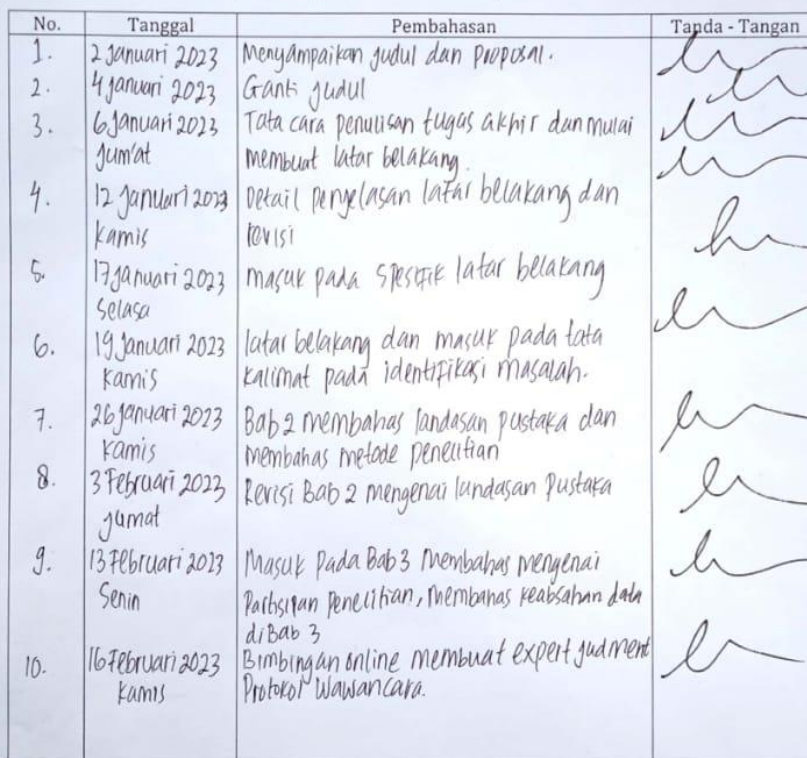 No. Tanggal Pembahasan Tanda - Tangan
1. 2 Januari 2023 Menyampaikan judul dan proposal.
2. 4 Januari 2023 Ganti judul
3. 6 Januari 2023 Tata cara penulisan tugas akhir dan mulai
Jum'at membuat latar belakang.
4. 12 Januari 2023 Detail penjelasan latar belakang dan
Kamis revisi
5. 17 Januari 2023 masuk pada spesifik latar belakang
Selasa
6. 19 Januari 2023 latar belakang dan masuk pada tata
Kamis kalimat pada identifikasi masalah.
7. 26 Januari 2023 Bab 2 membahas landasan pustaka dan
Kamis membahas metode penelitian
8. 3 Februari 2023 Revisi Bab 2 mengenai landasan pustaka
Jumat
9. 13 Februari 2023 Masuk pada Bab 3 membahas mengenai
Senin Partisipan penelitian, membahas keabsahan data
di Bab 3
10. 16 Februari 2023 Bimbingan online membuat expert judment
Kamis Protokol Wawancara.